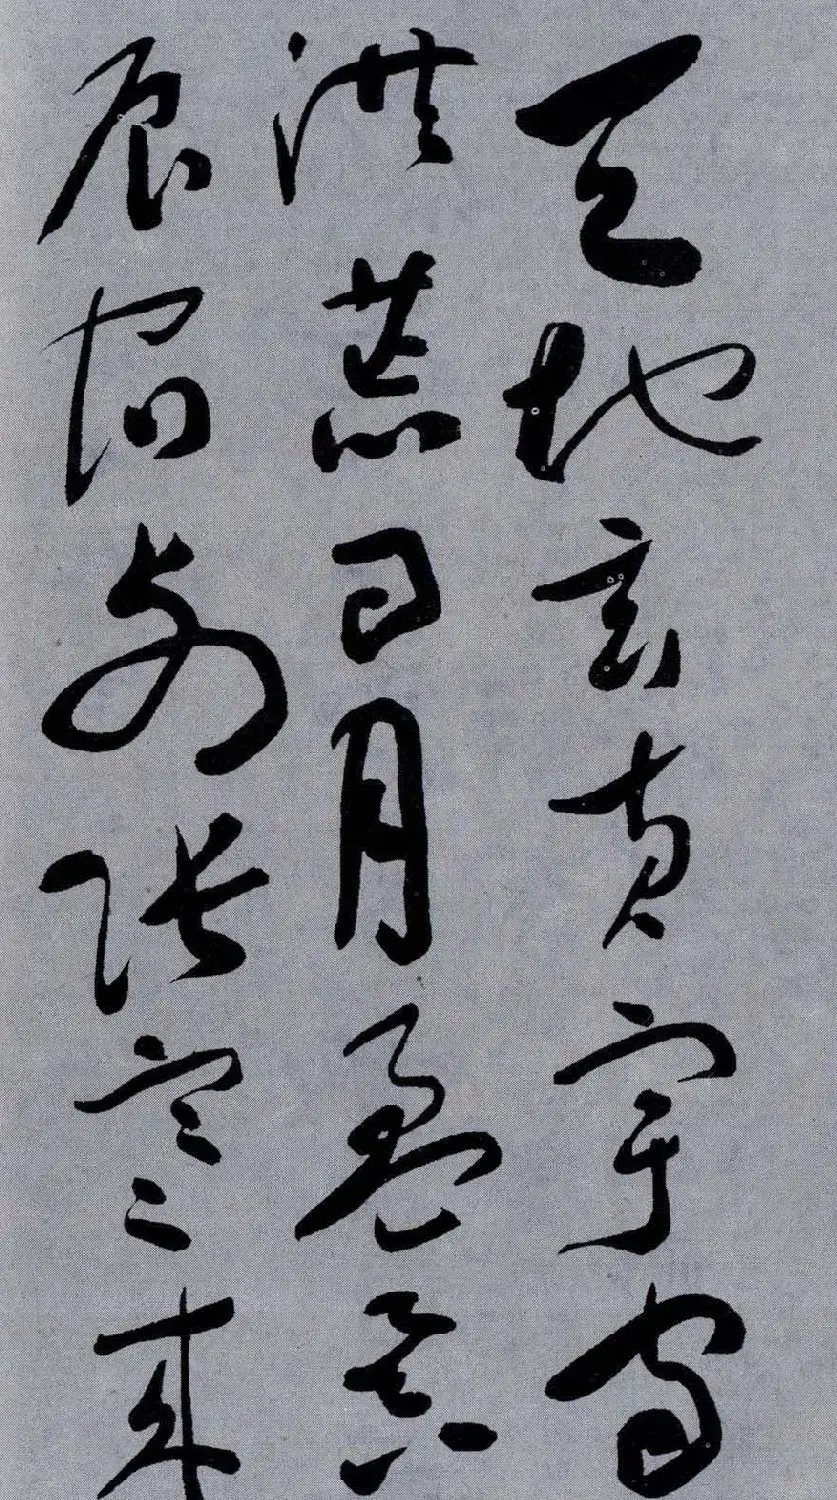 天地玄黄宇宙
洪荒日月盈昃
辰宿列张寒来